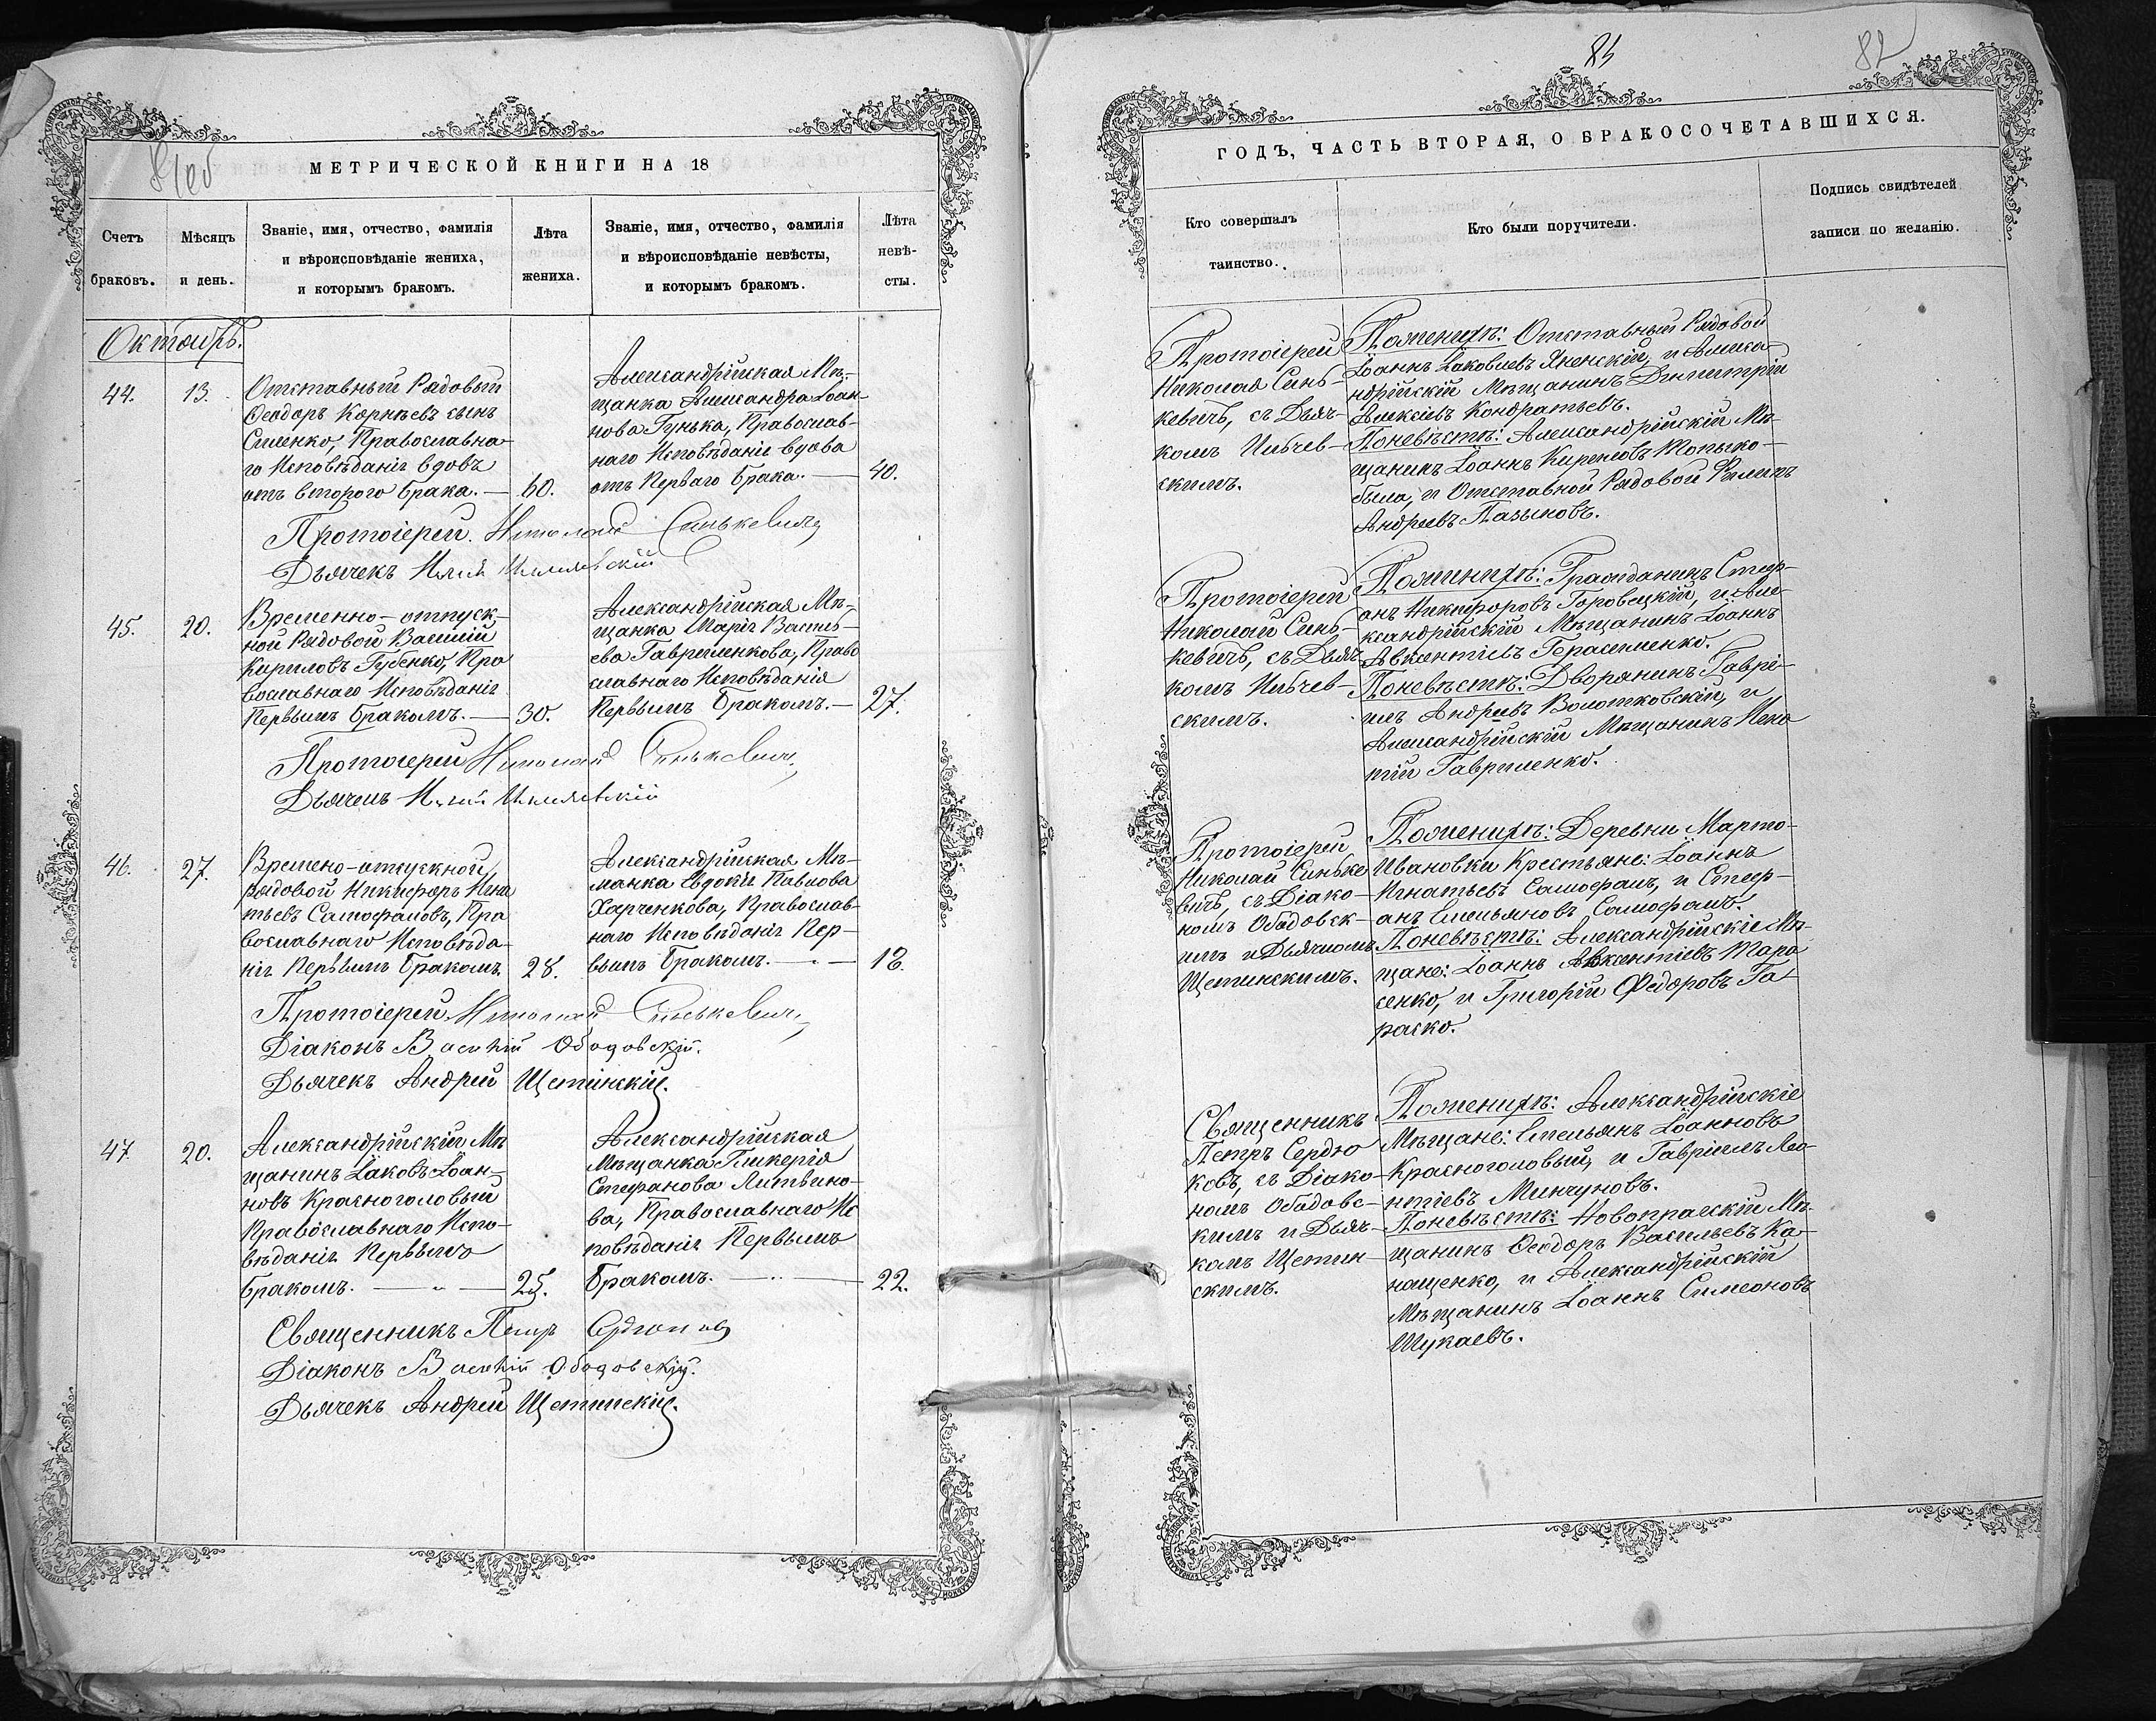 МЕТРИЧЕСКОЙ КНИГИ НА 18
Счетъ
браковъ.
Мѣсяцъ
и день.
Званіе, имя, отчество, фамилія
и вѣроисповѣданіе жениха,
и которымъ бракомъ.
Лѣта
жениха.
Званіе, имя, отчество, фамилія
и вѣроисповѣданіе невѣсты,
и которымъ бракомъ.
Лѣта
невѣ-
сты.
Октябрь.
44.
13.
Отставный Рядовый
Ѳеодоръ Корнѣевъ сынъ
Православна
го Исповѣданія вдовъ
отъ втораго брака. —
60.
Александрійская Мѣ-
щанка Александра Іоан-
нова Гунька, Православ-
наго Исповѣданія вдова
отъ Перваго брака. —
40.
Протоіерей Николай Синькевичъ
Дьячекъ
45.
20.
Временно-отпуск-
ной Рядовой Василій
Кириловъ Губенко, Пра
вославнаго Исповѣданія
Первымъ бракомъ. —
30.
Александрійская Мѣ-
щанка Марія Василь-
ева Гавриленкова, Право
славнаго Исповѣданія
Первымъ бракомъ. —
27.
Протоіерей Николай Синькевичъ
Дьячекъ
46.
27.
Времено-отпускной
рядовой Никифоръ Игна
тьевъ Самофаловъ, Пра
вославнаго Исповѣда-
нія Первымъ бракомъ.
28.
Александрійская Мѣ-
щанка Евдокія Павлова
Харченкова, Православ-
наго Исповѣданія Пер-
вымъ бракомъ. —
18.
Протоіерей Николай Синькевичъ
Діаконъ Василій Ободовскій.
Дьячекъ Андрей Щетинскій.
47.
20.
Александрійскій Мѣ
щанинъ Іаковъ Іоан-
новъ Красноголовый
Православнаго Испо-
вѣданія Первымъ
бракомъ. —
25.
Александрійская
Мѣщанка Гликерія
Стефанова Литвино-
ва, Православнаго Ис
повѣданія Первымъ
бракомъ. —
22.
Священникъ Петръ Сердюковъ
Діаконъ Василій Ободовскій.
Дьячекъ Андрей Щетинскій.
82
ГОДЪ, ЧАСТЬ ВТОРАЯ, О БРАКОСОЧЕТАВШИХСЯ.
Кто совершалъ
таинство.
Кто были поручители.
Подпись свидѣтелей
записи по желанію.
Протоіерей
Николай Синь-
кевичъ, съ Дьяч-
комъ
скимъ.
Поженихѣ: Отставный Рядовой
Іоаннъ Іаковлевъ и Алекса-
ндрійскій Мѣщанинъ Димитрій
Алексіевъ Кондратьевъ.
Поневѣстѣ: Александрійскій Мѣ-
щанинъ Іоаннъ
была, и Отставной Рядовой
Андреевъ
Протоіерей
Николай Синь-
кевичъ, съ Дьяч-
комъ
скимъ.
Поженихѣ: Гражданинъ Стеф-
анъ Никифоровъ Горовецкій, и Але-
ксандрійскій Мѣщанинъ Іоаннъ
Авксентіевъ Герасименко.
Поневѣстѣ: Дворянинъ Гаврі-
илъ Андреевъ и
Александрійскій Мѣщанинъ Игна
тій Гавриленко.
Протоіерей
Николай Синьке
вичъ, съ Діако-
номъ Ободовск-
имъ и Дьячкомъ
Щетинскимъ.
Поженихѣ: Деревни Марто-
Ивановки Крестьяне: Іоаннъ
Игнатьевъ Самофалъ, и Стеф-
анъ Емельяновъ Самофалъ.
Поневѣстѣ: Александрійскіе Мѣ-
щане: Іоаннъ Авксентіевъ Тара
сенко, и Григорій Федоровъ Та-
раско.
Священникъ
Петръ Сердю
ковъ, съ Діако-
номъ Ободовс-
кимъ и Дьяч-
комъ Щетин-
скимъ.
Поженихѣ: Александрійскіе
Мѣщане: Емельянъ Іоанновъ
Красноголовый, и Гавріилъ Лео-
нтіевъ Минчуновъ.
Поневѣстѣ: Новопражскій Мѣ-
щанинъ Ѳеодоръ Васильевъ Ка-
нащенко, и Александрійскій
Мѣщанинъ Іоаннъ Симеоновъ
Шукаевъ.